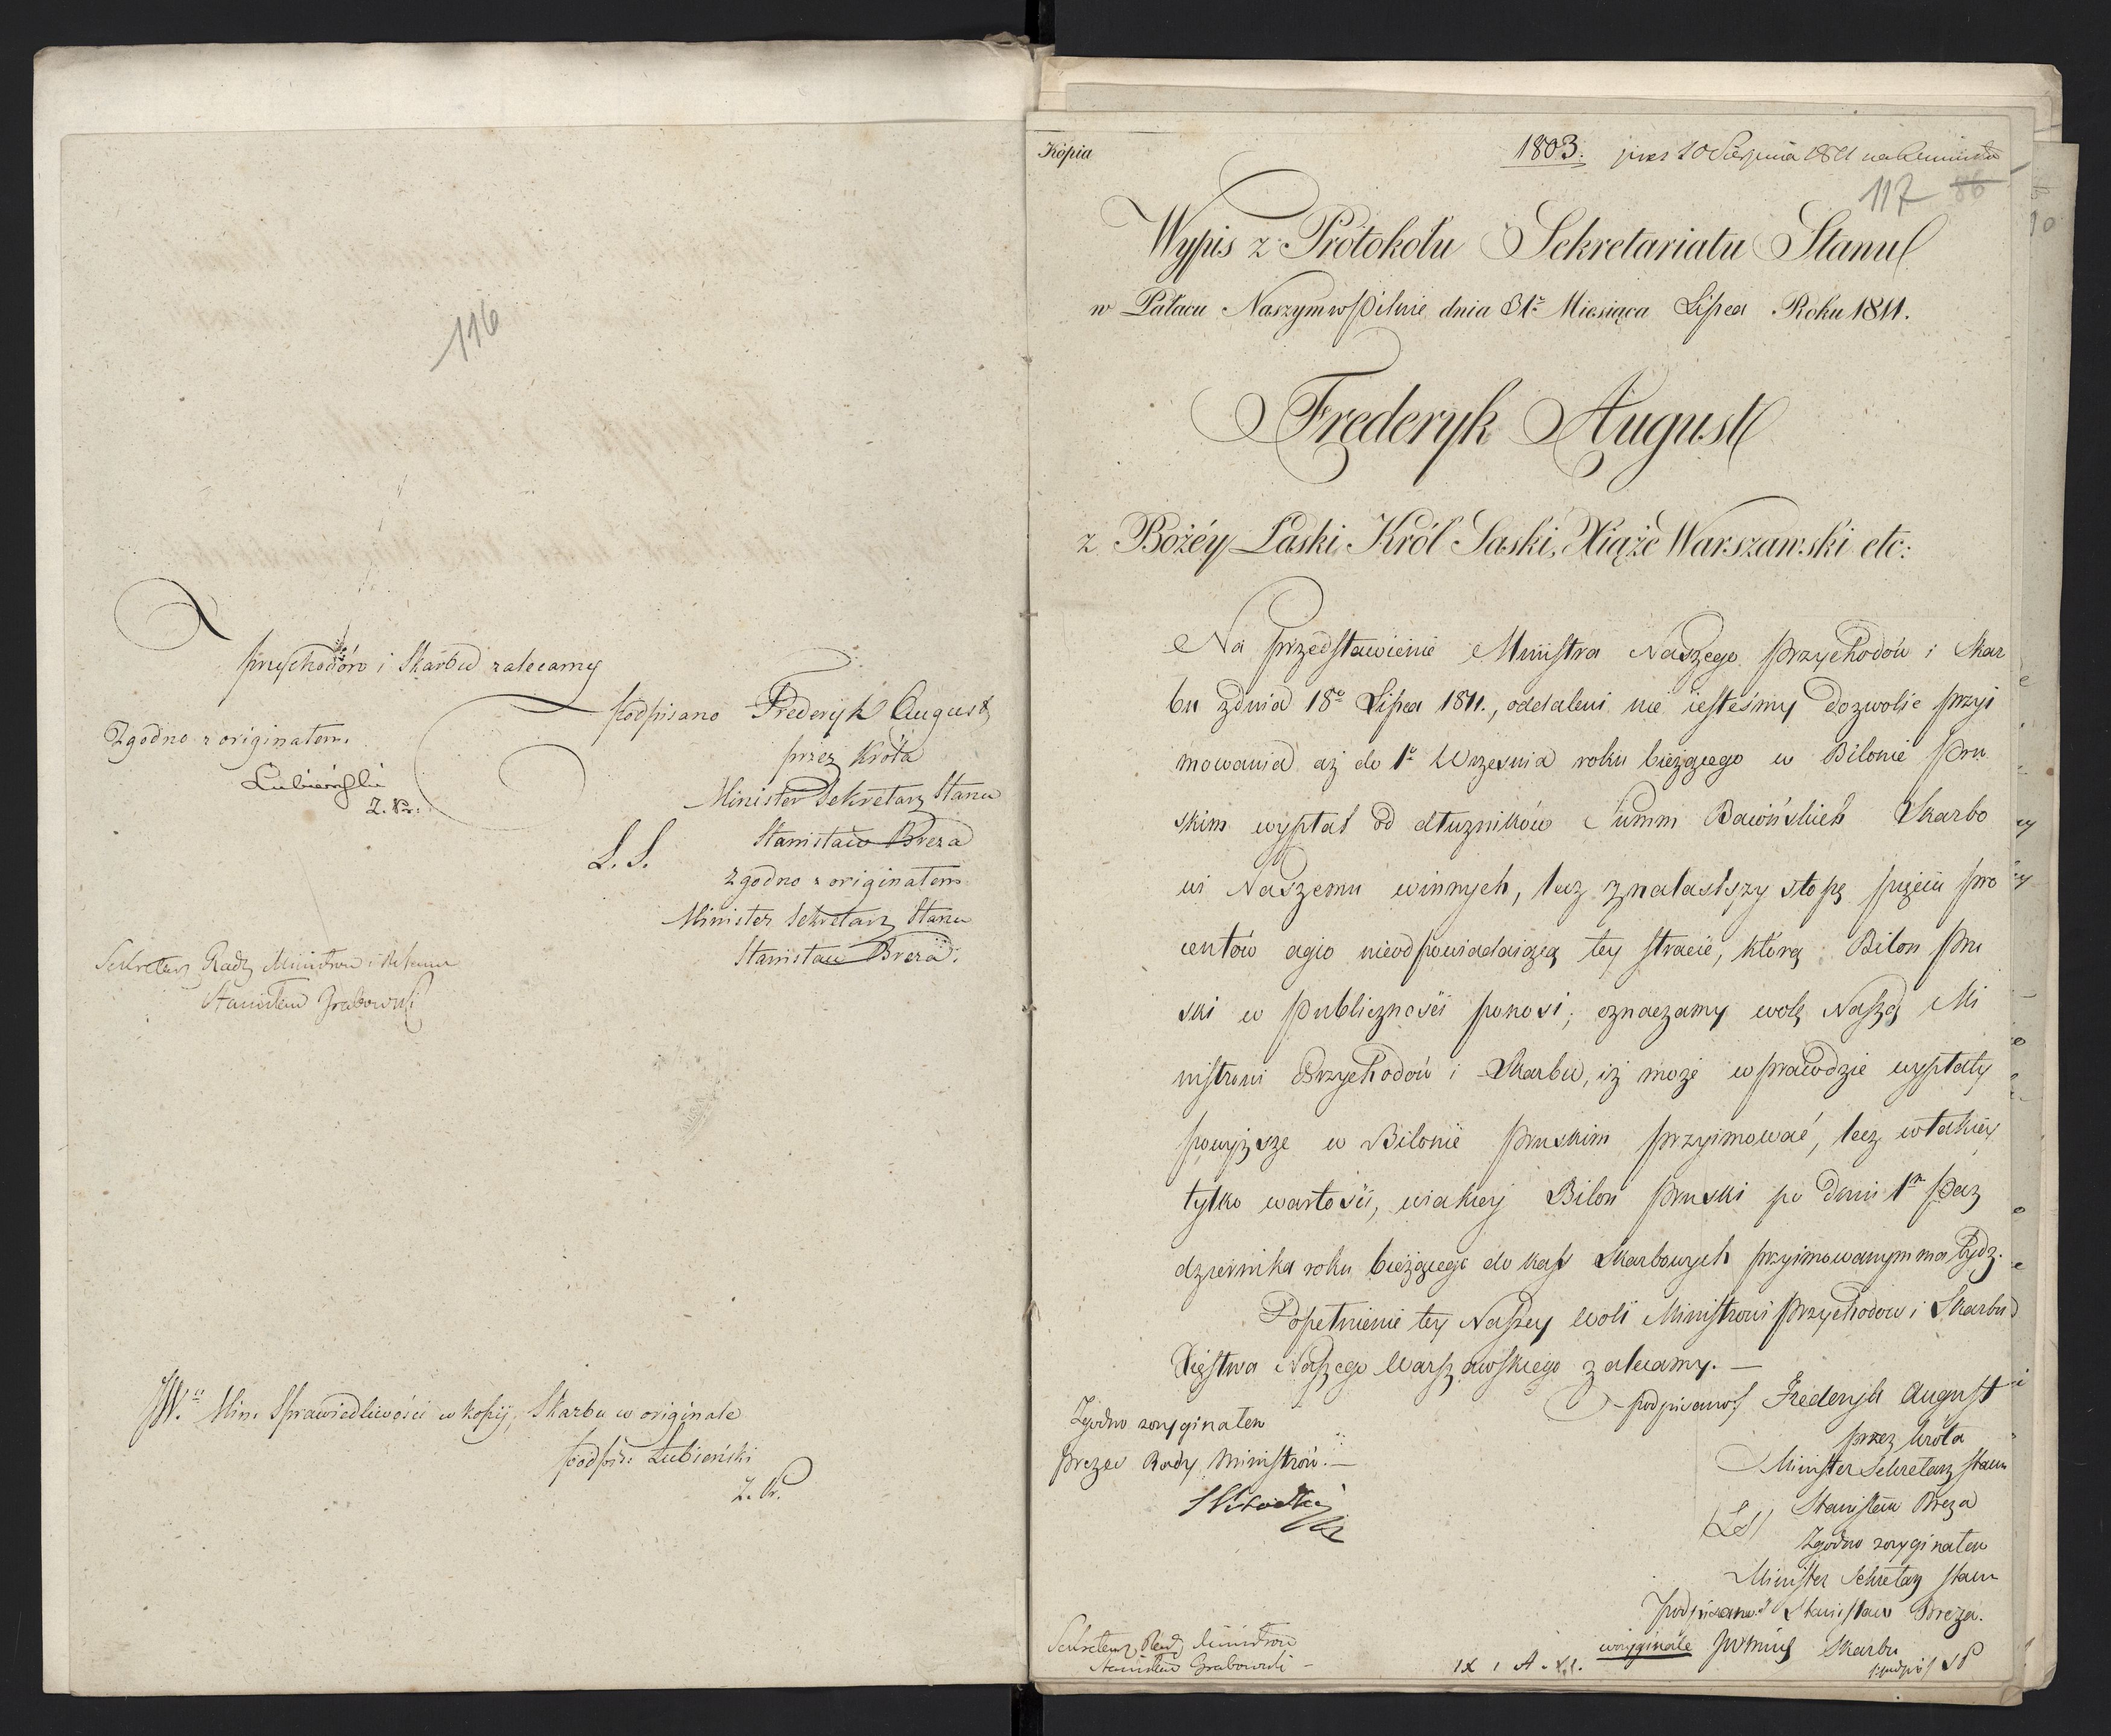 116
przychodów i Skarbu zalecamy
podpisano Frederyk August
przez Króla
Minister Sekretarz Stanu
Stanisław Breza
L. S.
zgodno z originałem
Minister Sekretarz Stanu
Stanisław Breza
Zgodno z originałem
Lubieński
Z. Pr:
Sekretarz Rady Ministrow
Stanisław Grabowski
JW. Min. Sprawiedliwości w kopij, Skarbu w originale
podpis: Lubieński
Z. Pr.
Kopia
1803. 20 Sierpnia 1811
117 86
Wypis z Protokołu Sekretariatu Stanu
w Pałacu Naszym w Pilnie dnia 31º Miesiąca Lipca Roku 1811.
Frederyk August
z Bożéy Łaski Król Saski, Xiąże Warszawski etc:
Na przedstawienie Ministra Naszego Przychodów i Skar
bu zdnia 18º Lipca 1811., oddaleni nie iesteśmy dozwolić przyi
mowania aż do 1º Września roku bieżącego w Bilonie Pru
skim wypłat od dłużników Summ Baiońskich Skarbo
wi Naszemu winnych, lecz znalazłszy stopę pięciu pro
centów agio nieodpowiadaiącą tey stracie, którą Bilon Pru
ski w Publiczności ponosi; oznaczamy wolę Naszą Mi
nistrowi Przychodów i Skarbu, iż może wprawdzie wypłaty
powyższe w Bilonie Pruskim przyimować, lecz wtakiey
tylko wartości, wiakiey Bilon Pruski po dniu 1m Paz
dziernika roku bieżącego do kass Skarbowych przyimowanym ma bydz.
Dopełnienie tey Naszey woli Ministrowi Przychodow i Skarbu
Xięstwa Naszego Warszawskiego zalecamy. —
podpisano Frederyk August
przez Króla
Minister Sekretarz Stanu
Stanisław Breza
(LS)
Zgodno zoryginałem
Minister Sekretarz Stanu
podpisano Stanisław Breza.
Zgodno zoryginałem
Prezes Rady Ministrów. —
Sekretarz Rady Ministrow
Stanisław Grabowski —
woryginale JW Mins Skarbu
podpis SP